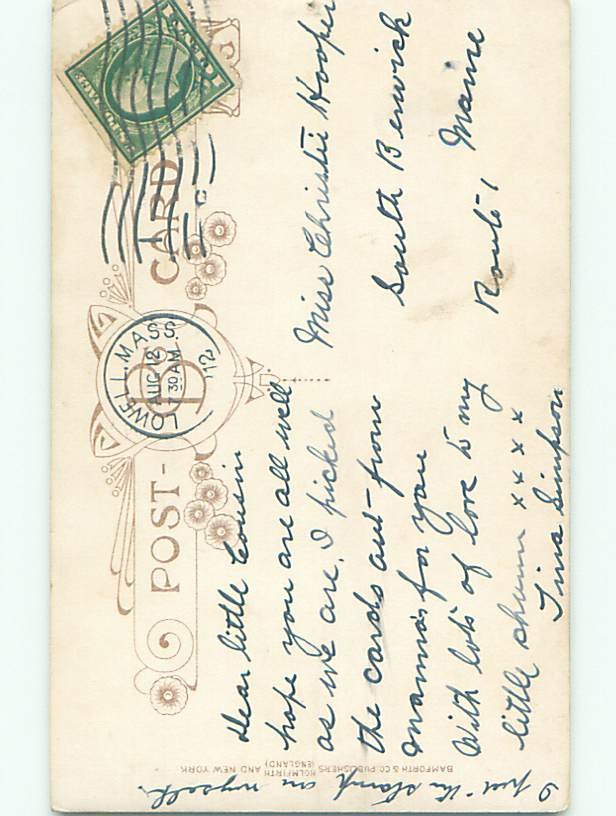 POST-CARD
LOWELL, MASS.
AUG 12
7 30 AM
'12
Dear little Cousin
hope you are all well
as we are. I picked
the cards out from
mama's for you
With lots of love to my
little chum x x x x
Tina Simpson
Miss Christie Hooper
South Berwick
Route 1 Maine
I put the stamp on myself.
BAMFORTH & CO. PUBLISHERS HOLMFIRTH (ENGLAND) AND NEW YORK